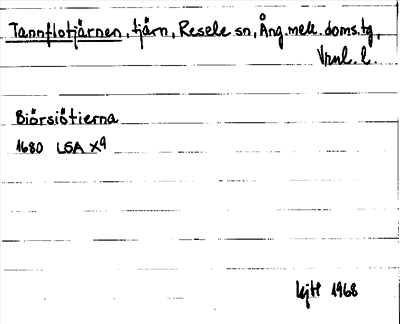 Tannflotjärnen, tjärn, Resele sn, Ång. mell. doms.tg,
Vrnl. l.
Biörsiötierna
1680 LSA X9
1968